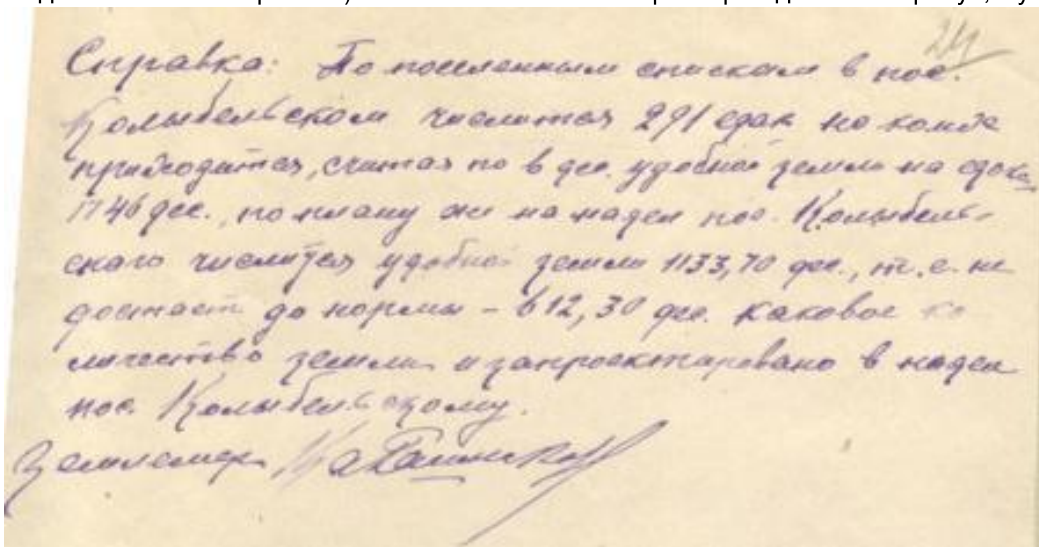 24
Справка: По поселенным спискам в пос.
Колыбельском числится 291 едок на коих
приходится, считая по 6 дес. удобной земли на едока
1746 дес., по плану же на надел пос. Колыбель-
скаго числится удобной земли 1133,70 дес., т.е. не
достает до нормы – 612,30 дес. каковое ко
личество земли и запроектировано в надел
пос. Колыбельскому.
Землемер